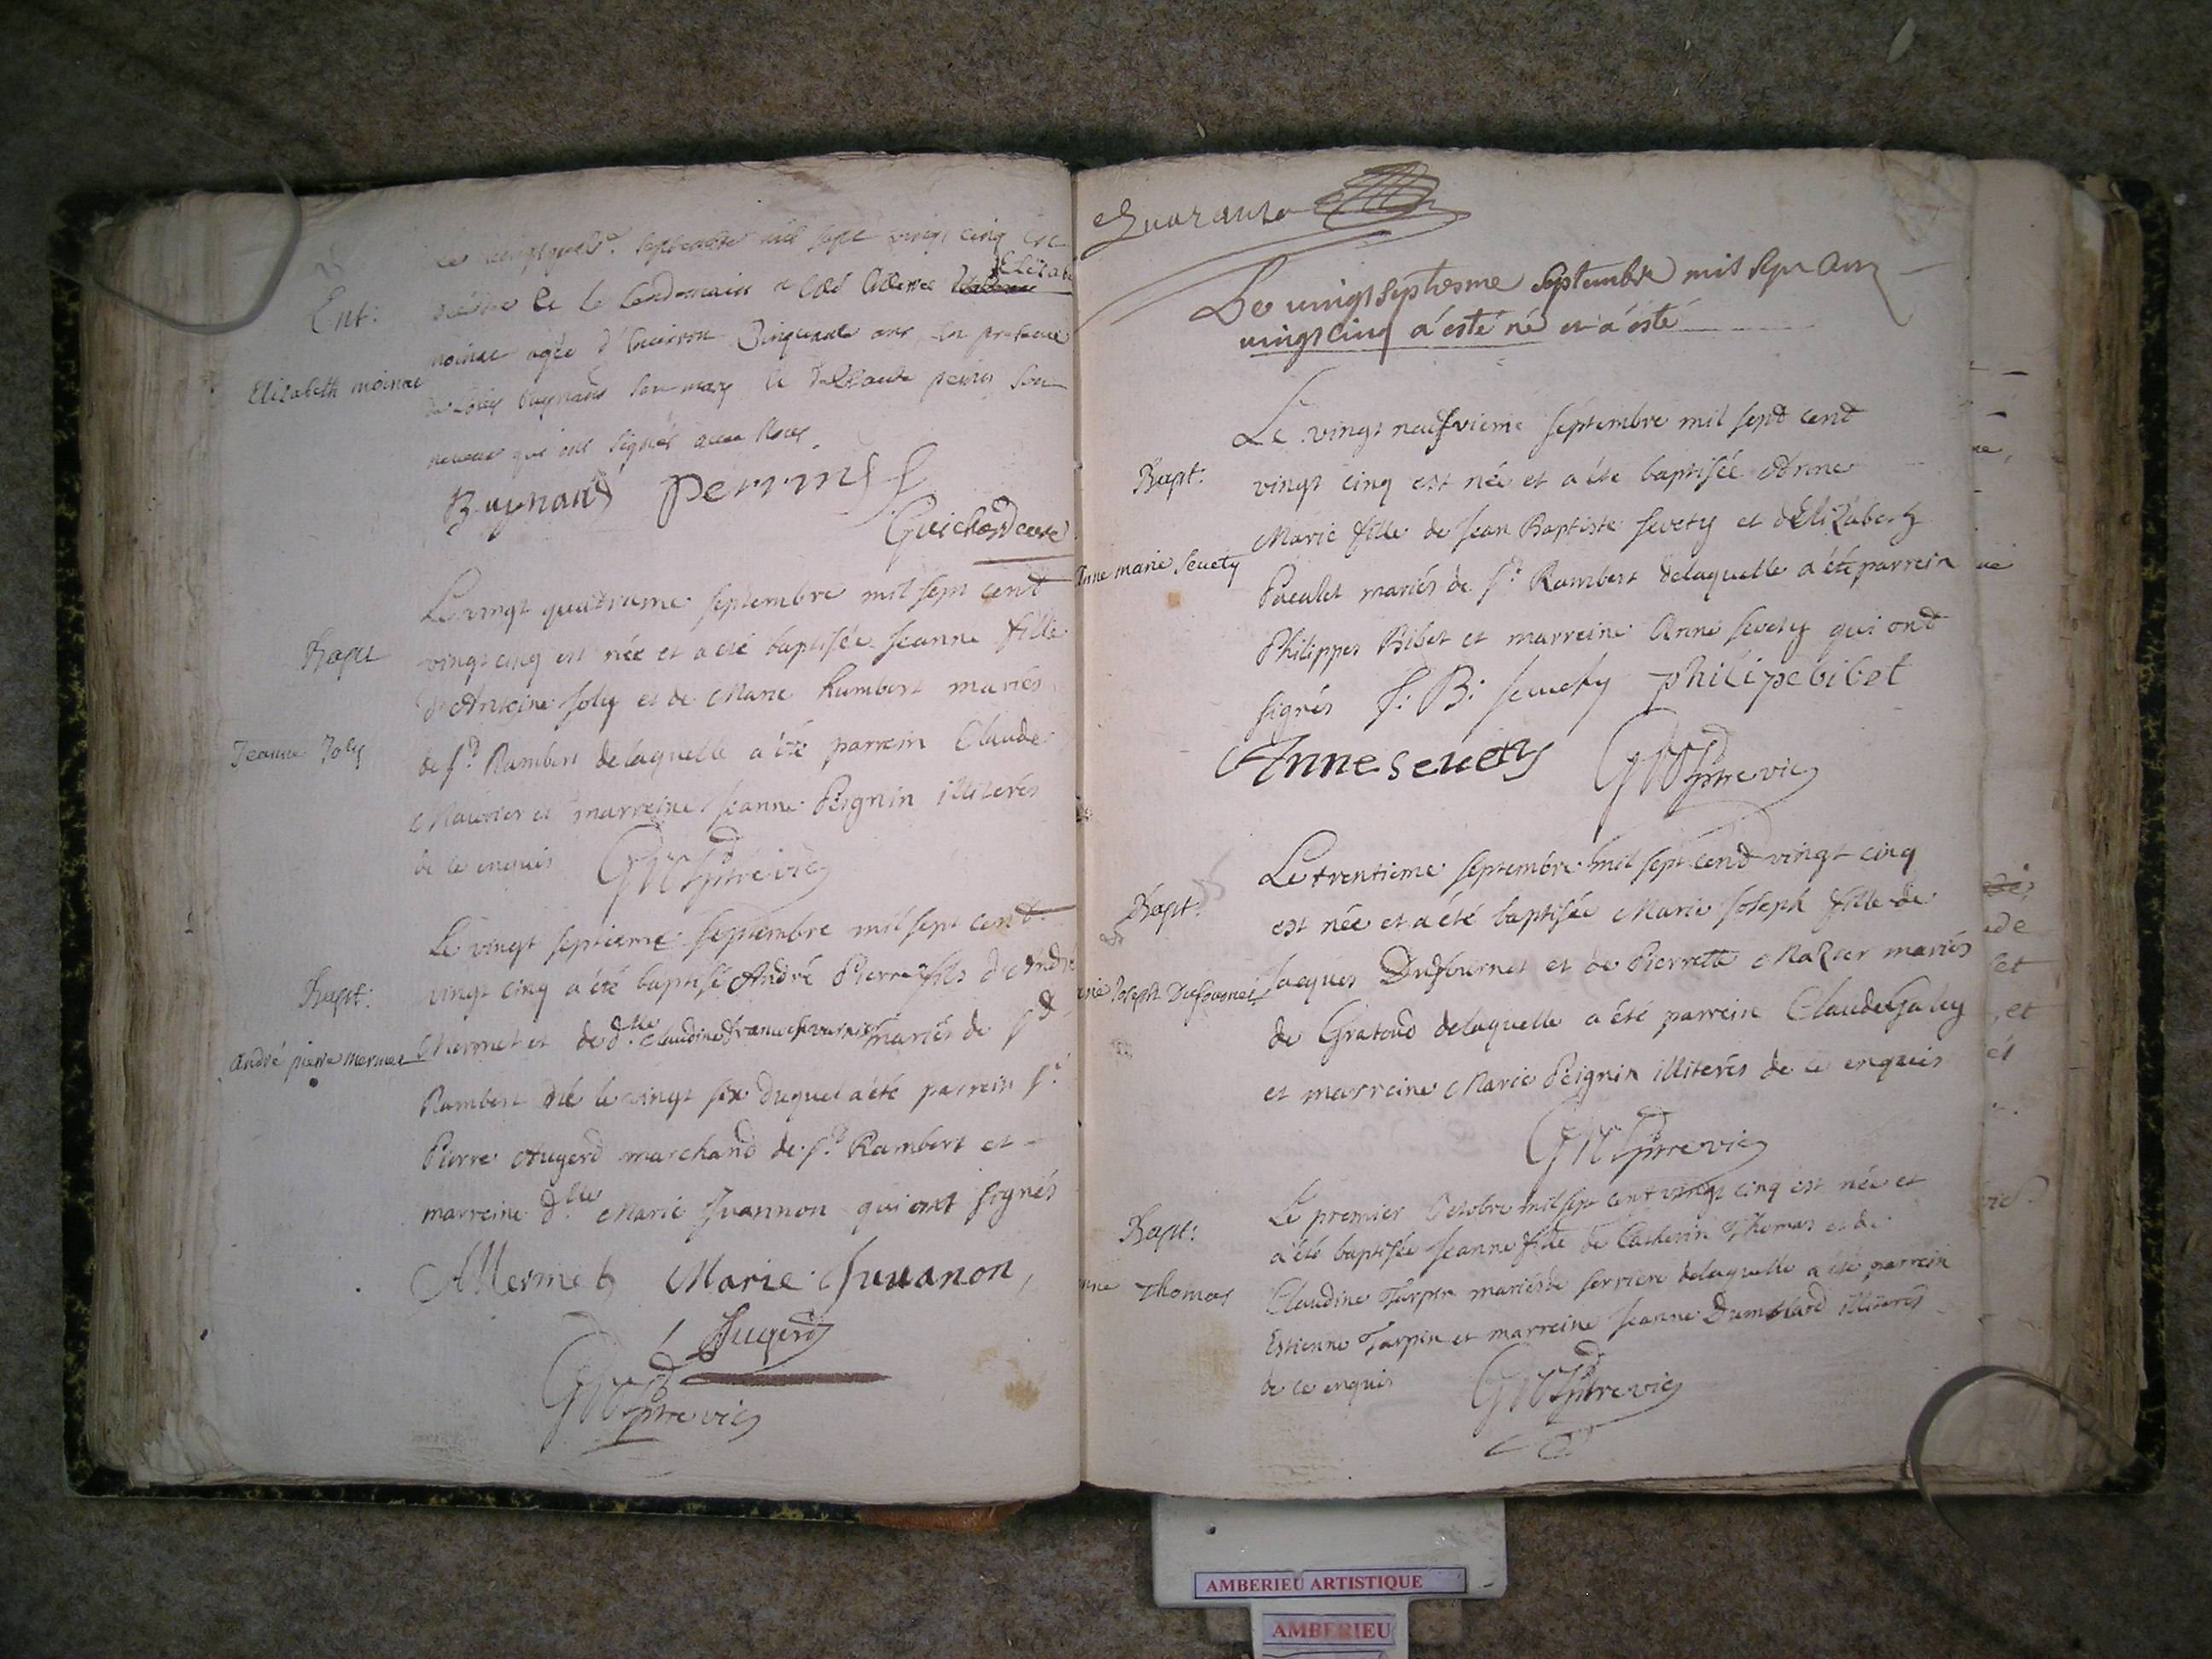 Ent:
Elizabeth moinat
septembre mil sept vingt cinq est
et le lendemain a été Elizab
moinat agée d'environ Cinquante ans en presence
Buynand son mary et de Claude perrin son
neveux qui ont signés avec Nous
Buynand perrin
Guichard curé
Bapt
Jeanne Joly
Le vingt quatrieme septembre mil sept cent
vingt cinq est née et a été baptisée Jeanne fille
d'Antoine Joly et de Marie humbert mariés
de st Rambert delaquelle a été parrein Claude
et marreine Jeanne Peignin illiterés
de ce enquis ptre vic
Bapt:
andré pierre mermet
Le vingt septieme septembre mil sept cent
vingt cinq a été baptisé André Pierre fils d'André
Mermet et de dlle Claudine mariés de st
Rambert né le vingt six duquel a été parrein sr
Pierre Augerd marchand de st Rambert et
marreine dlle Marie Juuannon qui ont signés
AMermet Marie Juuanon,
Augerd
ptre vic
Quarante
Le vingt septiesme septembre mil sept cen
vingt cinq a'esté né et a'esté
Bapt:
Anne marie Seuety
Le vingt neufvieme septembre mil sept cent
vingt cinq est née et a été baptisée Anne
Marie fille de Jean Baptiste Sevety et d'Elizabeth
mariés de st Rambert delaquelle a été parrein
Philippes Bibet et marreine Anne Sevety qui ont
signés J: B: seuety philipe bibet
Anne seuety
ptre vic
Bapt:
Marie Joseph Dufournet
Le trentieme septembre mil sept cent vingt cinq
est née et a été baptisée Marie Joseph fille de
Jacques Dufournet et de Pierrette Mazier mariés
de Gratoud delaquelle a été parrein Claude Galey
et marreine Marie Peignin illiterés de ce enquis
ptre vic
Bapt:
Thomas
Le premier Octobre mil sept cent vingt cinq est née et
a été baptisée Jeanne fille de Catherin Thomas et de
Claudine Tarpin mariés de serriere delaquelle a été parrein
Estienne Tarpin et marreine Jeanne Dumollard illiterés
de ce enquis
ptre vic
AMBERIEU ARTISTIQUE
AMBERIEU